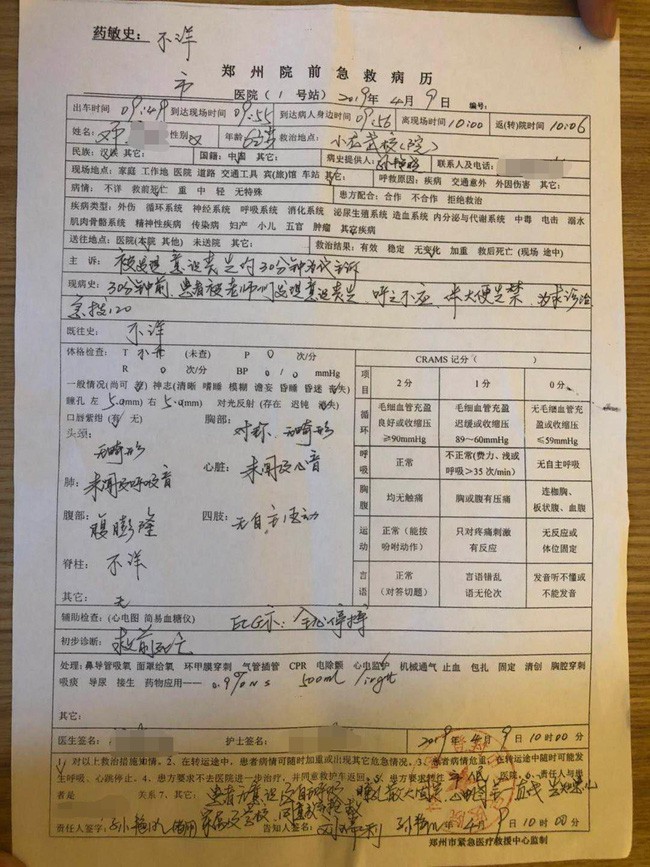 药敏史：不详
市
郑州院前急救病历
医院（1号站）2019年4月9日 编号：
出车时间 09:49 到达现场时间 09:55 到达病人身边时间 09:56 离现场时间 10:00 返(转)院时间 10:06
姓名：邓 性别 女 年龄 救治地点： 小龙武校(院)
民族：汉族 其它： 国籍：中国 其它： 病史提供人： 联系人及电话：
现场地点：家庭 工作地 医院 道路 交通工具 宾(旅)馆 车站 其它： 呼救原因：疾病 交通意外 外因伤害 其它：
病情：不详 救前死亡 重 中 轻 无特殊 患方配合：合作 不合作 拒绝救治
疾病类型：外伤 循环系统 神经系统 呼吸系统 消化系统 泌尿生殖系统 造血系统 内分泌与代谢系统 中毒 电击 溺水
肌肉骨骼系统 精神性疾病 传染病 妇产 小儿 五官 肿瘤 其它疾病
送往地点：医院(本院 其他) 未送院 其它： 救治结果：有效 稳定 无变化 加重 救后死亡 (现场 途中)
主诉： 被发现意识丧失约30分钟为代主诉
现病史：30分钟前，患者被老师们发现意识丧失，呼之不应，伴大便失禁，为求诊治
急拨120
既往史： 不详
体格检查：T 不升 (未查) P 0 次/分 CRAMS 记分（ ）
R 0 次/分 BP 0/0 mmHg
项目 2分 1分 0分
一般情况(尚可 差) 神志(清晰 嗜睡 模糊 谵妄 昏睡 昏迷 丧失)
瞳孔 左 5.0mm) 右 5.0mm) 对光反射 (存在 迟钝 消失)
口唇紫绀 (有 无) 胸部： 对称、无畸形
循环 毛细血管充盈良好或收缩压≥90mmHg 毛细血管充盈迟缓或收缩压89～60mmHg 无毛细血管充盈或收缩压≤59mmHg
头颈： 无畸形
呼吸 正常 不正常(费力、浅或呼吸＞35次/min) 无自主呼吸
肺： 未闻及呼吸音 心脏： 未闻及心音
胸腹 均无触痛 胸或腹有压痛 连枷胸、板状腹、血腹
腹部： 腹膨隆 四肢： 无自主活动
运动 正常（能按吩咐动作） 只对疼痛刺激有反应 无反应或体位固定
脊柱： 不详
言语 正常（对答切题） 言语错乱语无伦次 发音听不懂或不能发音
其它： 无
辅助检查：(心电图 简易血糖仪) ECG示：全心停搏
初步诊断： 救前死亡
处理：鼻导管吸氧 面罩给氧 环甲膜穿刺 气管插管 CPR 电除颤 心电监护 机械通气 止血 包扎 固定 清创 胸腔穿刺
吸痰 导尿 接生 药物应用—— 0.9% NS 500ml
其它：
医生签名： 护士签名： 2019年4月9日10时00分
1、对以上救治措施知情。2、在转运途中，患者病情可随时加重或出现其它危急情况。3、患者病情危重，在转运途中随时可能发
生呼吸、心跳停止。4、患方要求不去医院进一步治疗，并同意救护车返回。5、患方要求转往 医院。6、责任人与患
者是 关系 7、其它： 患者无意识无自主呼吸，瞳孔散大固定，心电图呈一直线
责任人签字： 告知人签名： 4月9日10时00分
郑州市紧急医疗救援中心监制